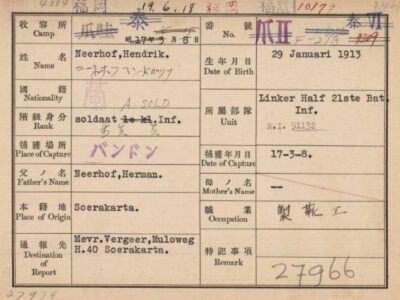 福岡 19.6.18 福岡 福岡 10177
收容所 Camp 爪 泰 昭17年3月8日
番號 No. 爪II 泰VI
姓名 Name Neerhof, Hendrik.
生年月日 Date of Birth 29 Januari 1913
國籍 Nationality 蘭
所屬部隊 Unit Linker Half 21ste Bat. Inf.
階級身分 Rank A. SOLD soldaat le kl, Inf.
N.I. 91132
捕獲場所 Place of Capture バンドン
捕獲年月日 Date of Capture 17-3-8.
父ノ名 Father's Name Neerhof, Herman.
母ノ名 Mother's Name --
本籍地 Place of Origin Soerakarta.
職業 Occupation
通報先 Destination of Report Mevr. Vergeer, Nuloweg H.40 Soerakarta.
特記事項 Remark 27966
27979